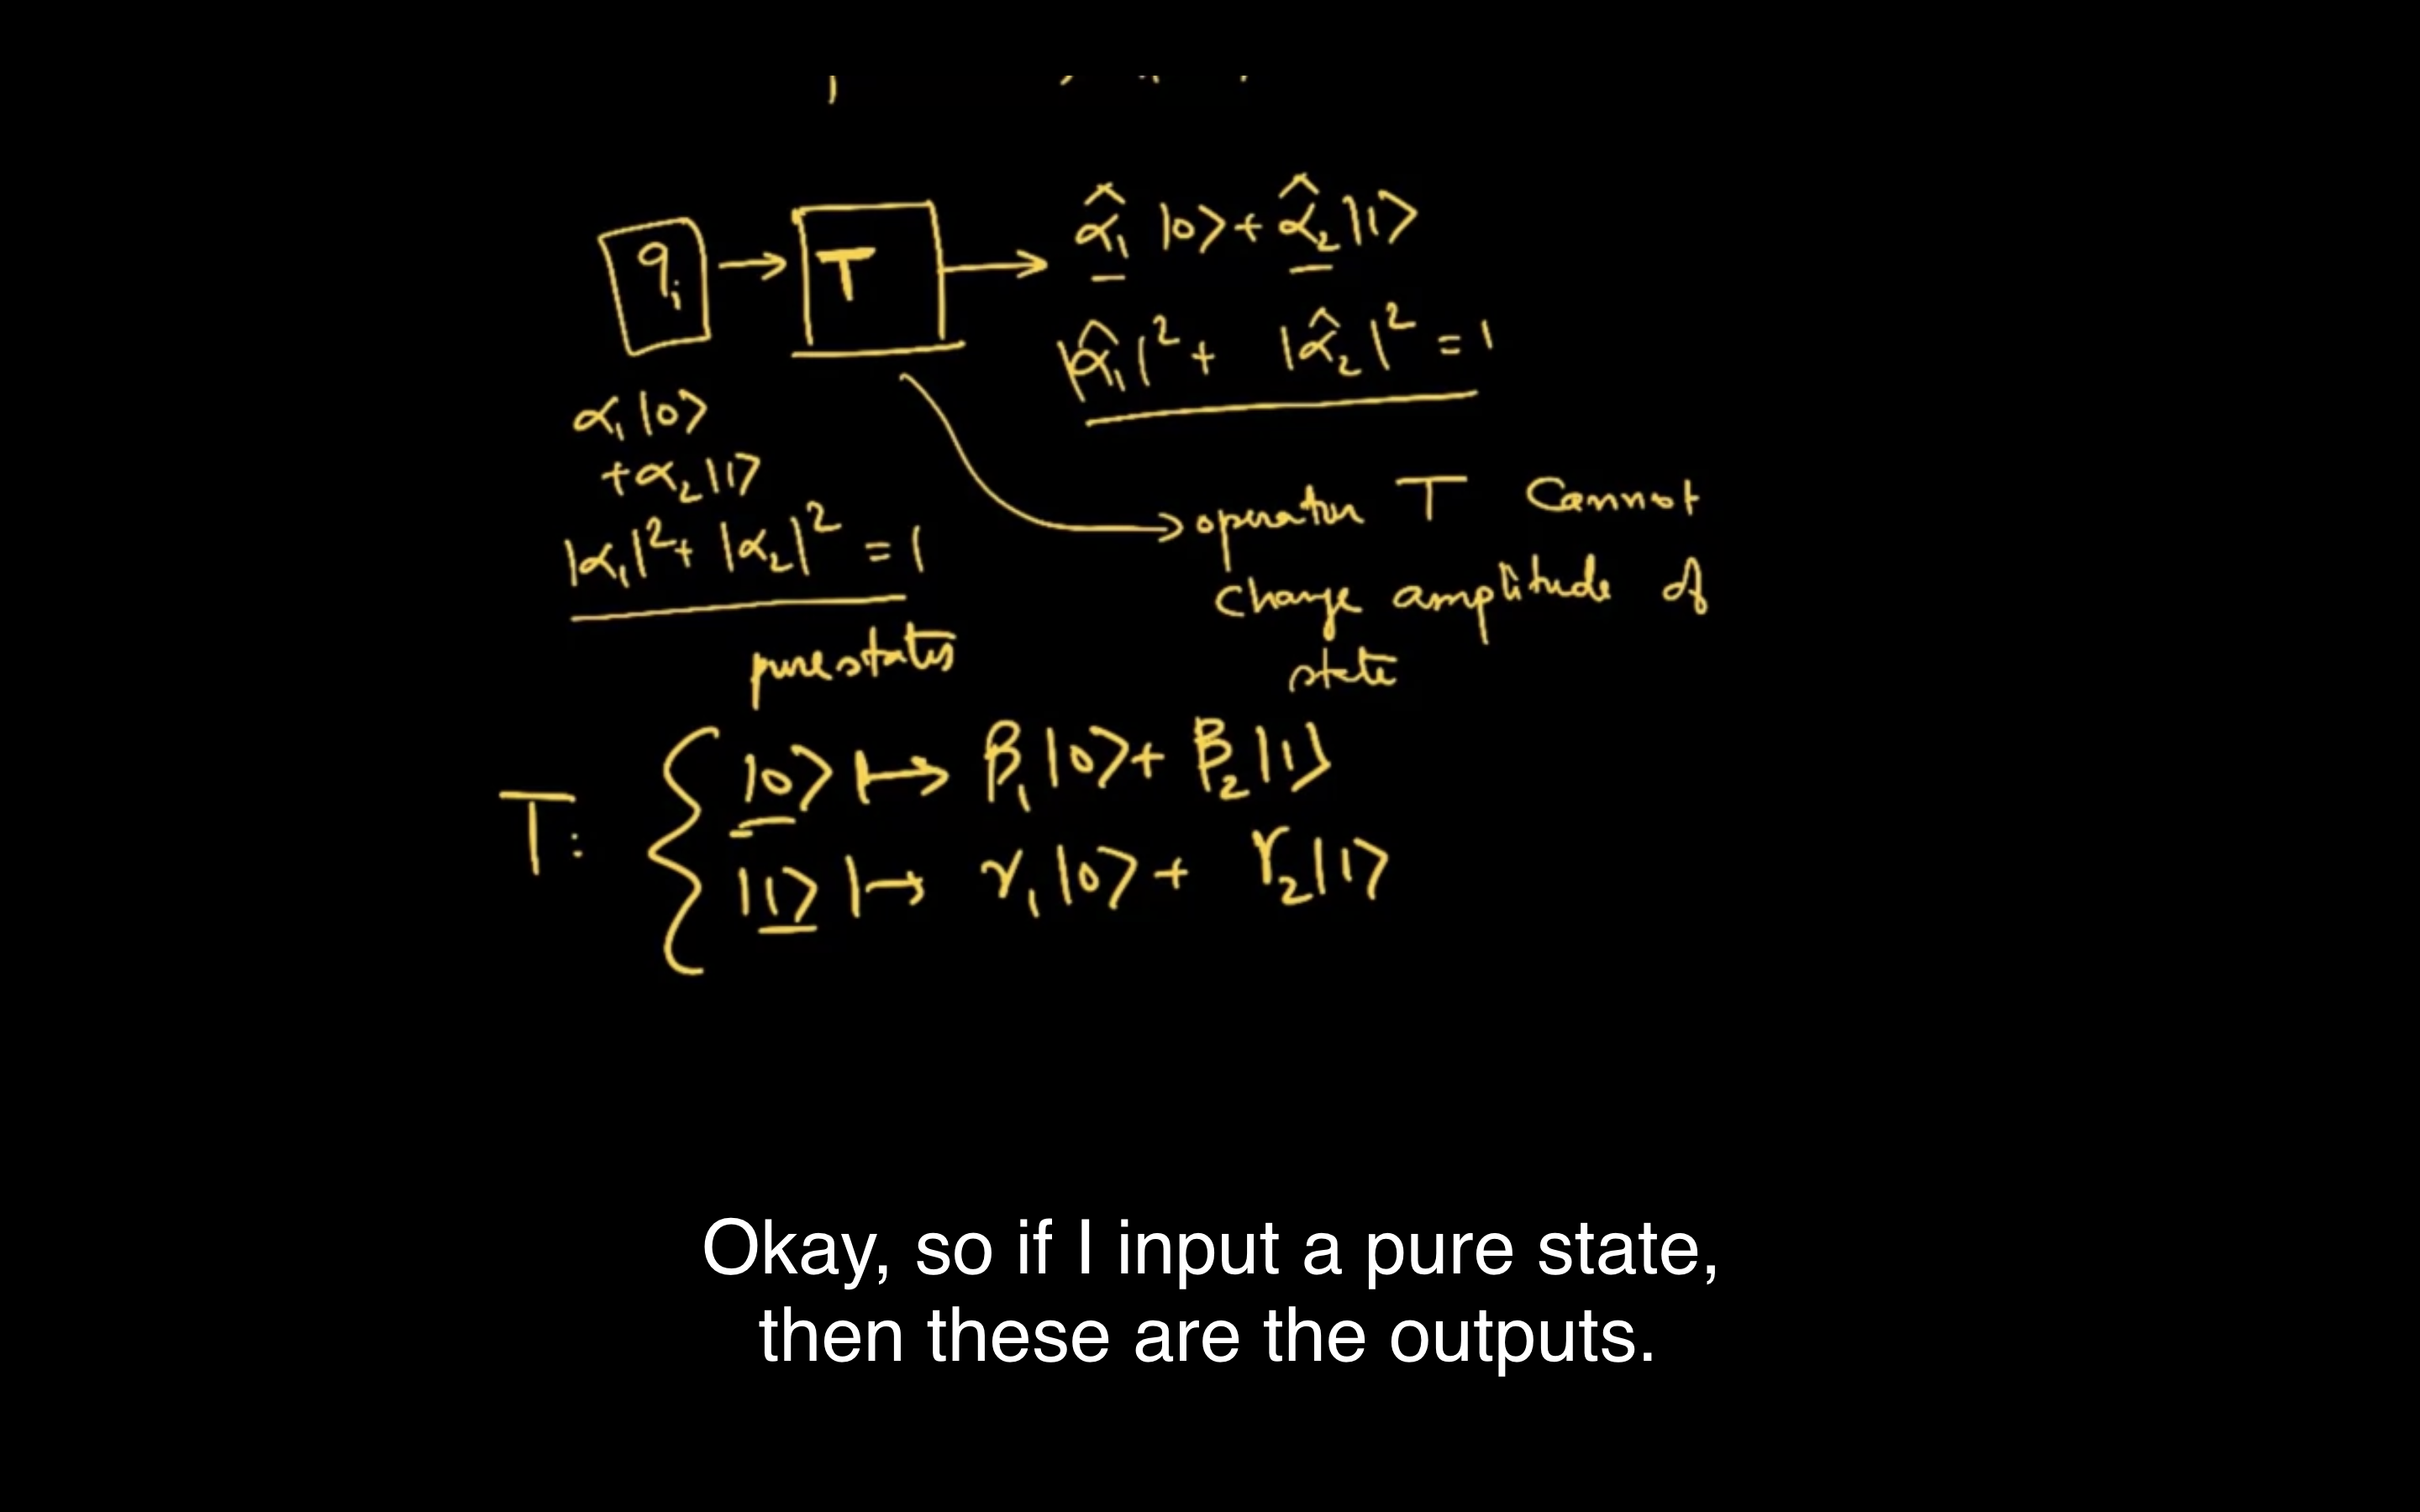 qᵢ → T → α̂₁ |0⟩ + α̂₂ |1⟩
|α̂₁|² + |α̂₂|² = 1
α₁ |0⟩
+ α₂ |1⟩
|α₁|² + |α₂|² = 1
operator T Cannot
change amplitude of
state
pure states
T: { |0⟩ ↦ β₁ |0⟩ + β₂ |1⟩
|1⟩ ↦ γ₁ |0⟩ + γ₂ |1⟩
Okay, so if I input a pure state,
then these are the outputs.